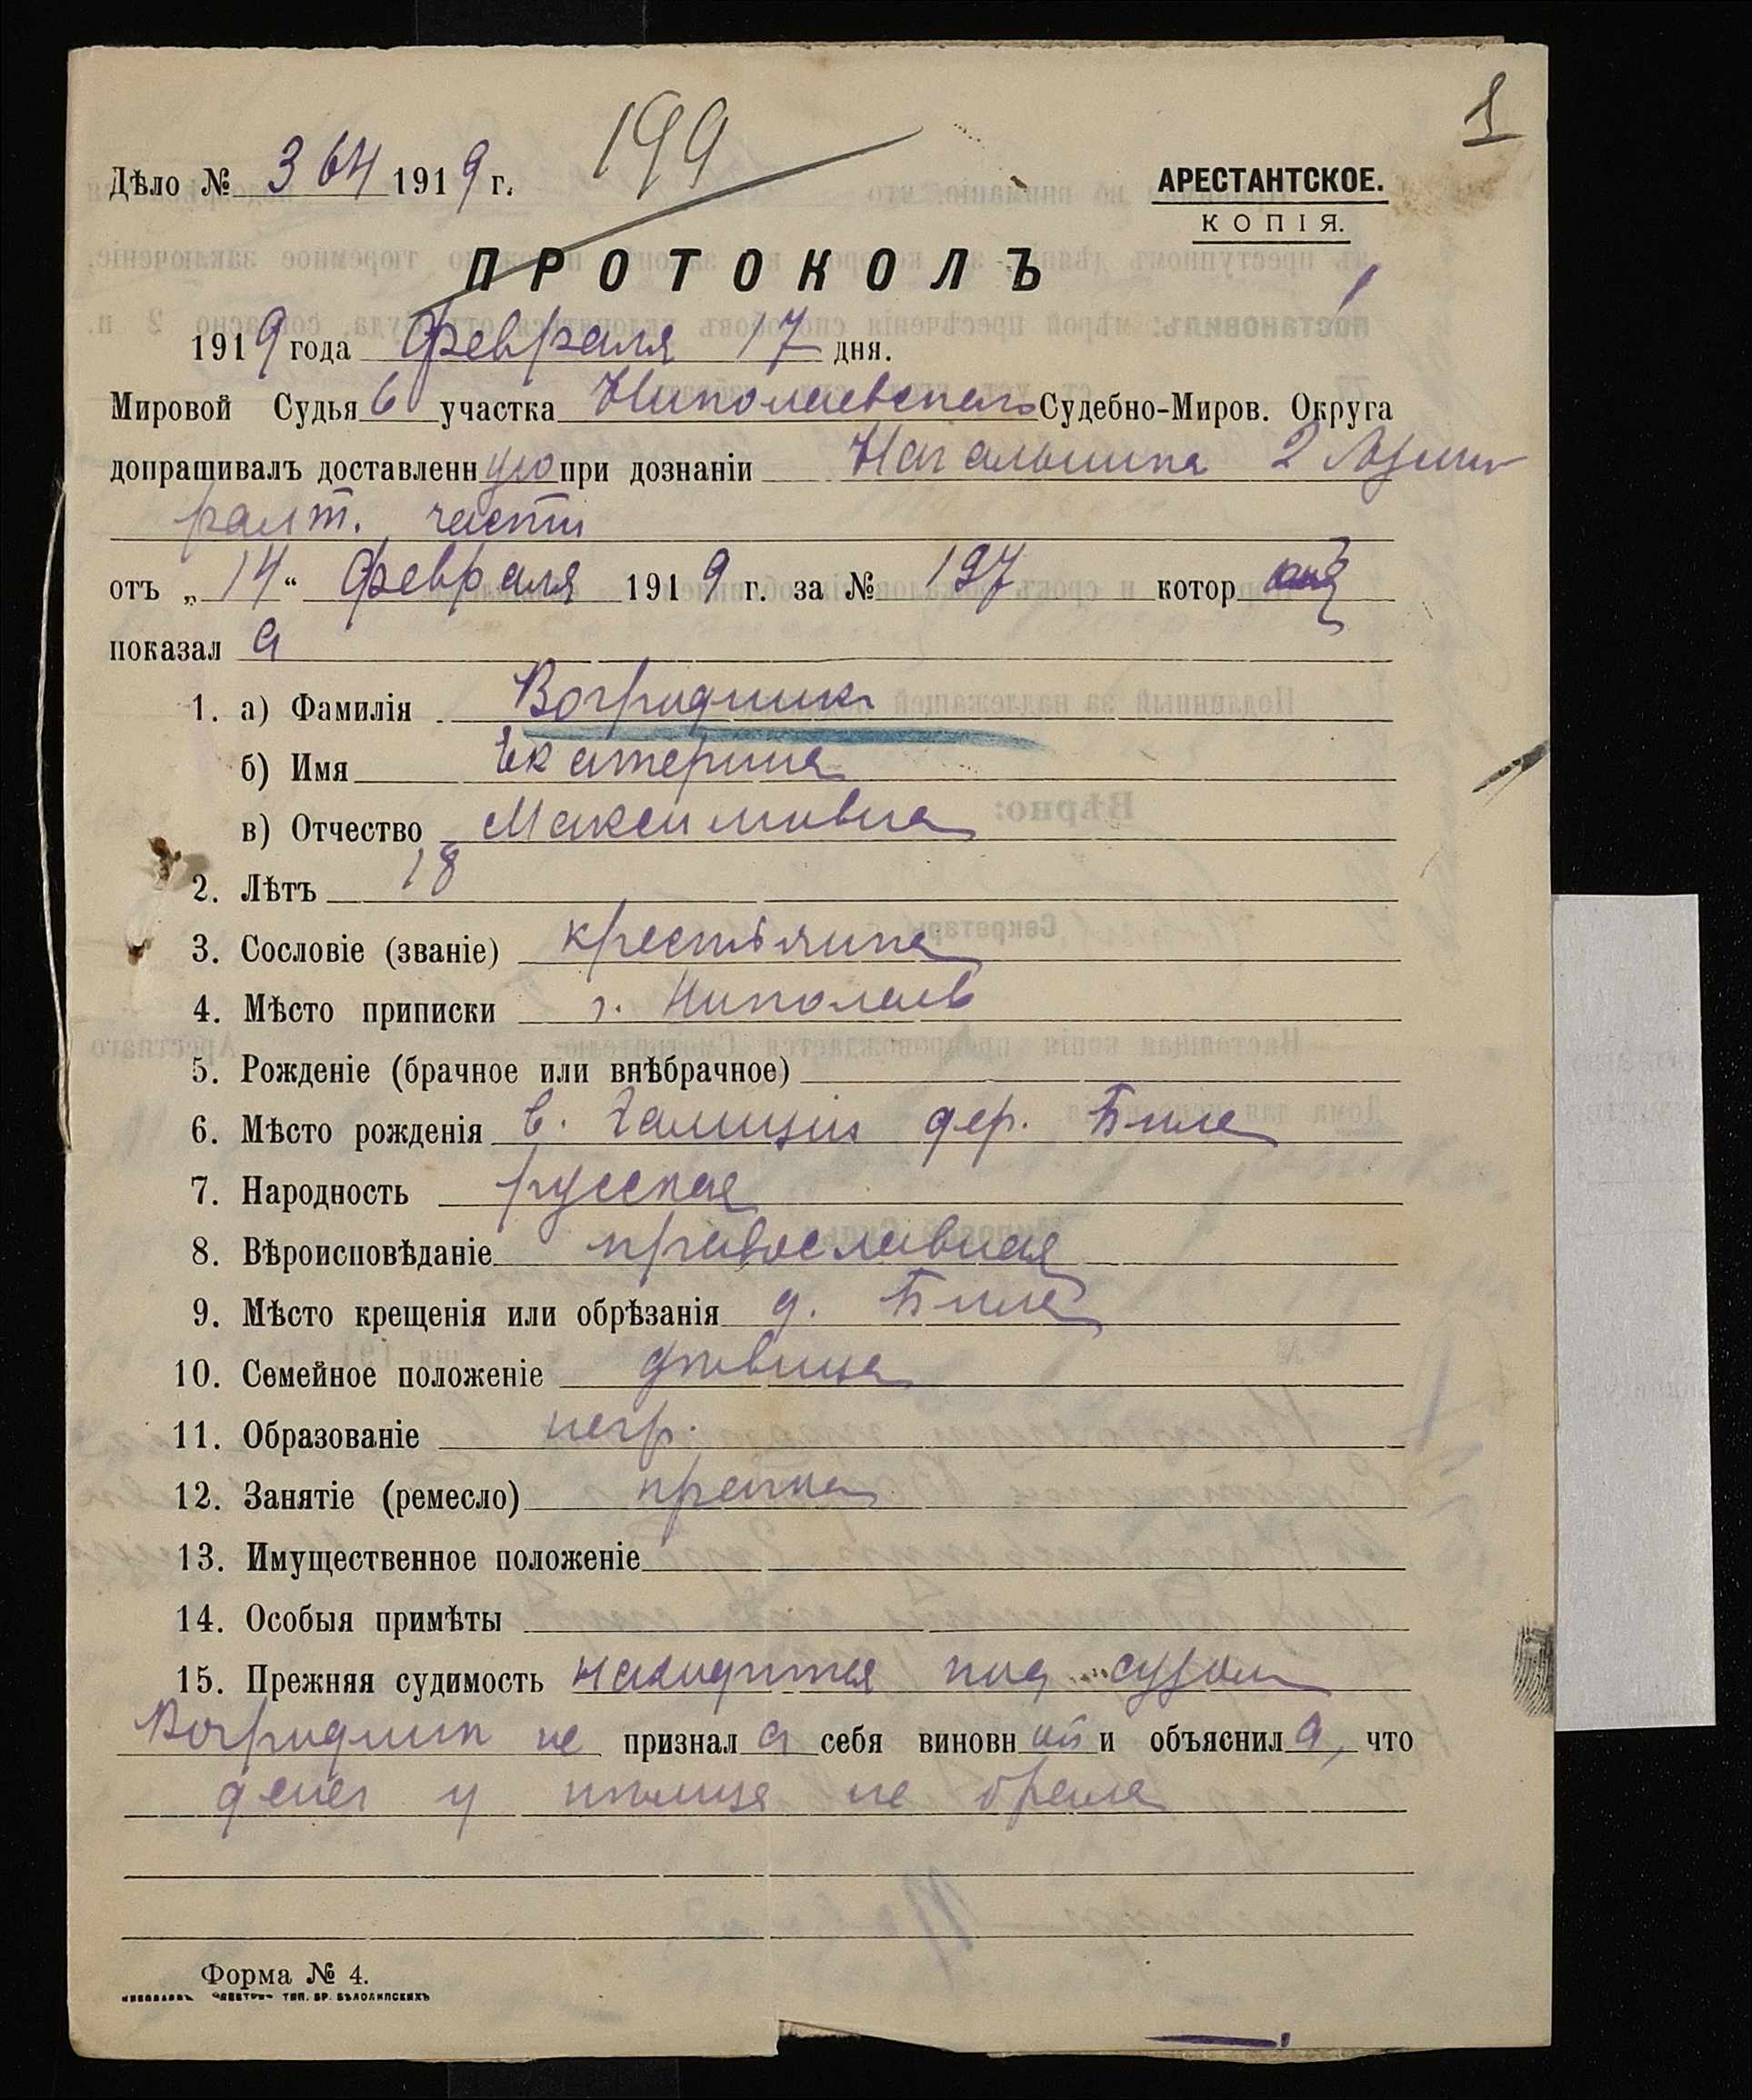 1
199
Дѣло № 364 1919 г.
АРЕСТАНТСКОЕ.
КОПІЯ.
ПРОТОКОЛЪ
1919 года Февраля 17 дня.
Мировой Судья 6 участка Николаевского Судебно-Миров. Округа
допрашивалъ доставленную при дознаніи Начальника 2 Адми
ралт. части
отъ „14“ Февраля 1919 г. за № 197 котор
показала
1. а) Фамилія
б) Имя Екатерина
в) Отчество Максимовна
2. Лѣтъ 18
3. Сословіе (званіе) крестьянка
4. Мѣсто приписки г. Николаев
5. Рожденіе (брачное или внѣбрачное)
6. Мѣсто рожденія в. Галиции дер. Биле
7. Народность русская
8. Вѣроисповѣданіе православная
9. Мѣсто крещенія или обрѣзанія д. Биле
10. Семейное положеніе дѣвица
11. Образованіе негр.
12. Занятіе (ремесло) прачка
13. Имущественное положеніе
14. Особыя примѣты
15. Прежняя судимость находится под судом
не признала себя виновной и объяснила, что
денег у не брала
Форма № 4.
ТИП. БР. БѢЛОЛИПСКИХЪ